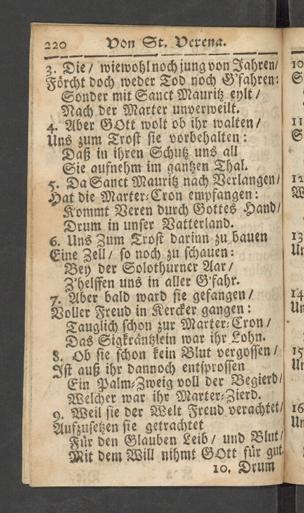 220 Von St. Verena.
3. Die / wiewohl noch jung von Jahren /
Förcht doch weder Tod noch G'fahren:
Sonder mit Sanct Mauritz eylt /
Nach der Marter unverweilt.
4. Aber GOtt wolt ob ihr walten /
Uns zum Trost sie vorbehalten:
Daß in ihren Schutz uns all
Sie aufnehm im gantzen Thal.
5. Da Sanct Mauritz nach Verlangen /
Hat die Marter-Cron empfangen:
Kommt Veren durch Gottes Hand /
Drum in unser Vatterland.
6. Uns Zum Trost darinn zu bauen
Eine Zell / so noch zu schauen:
Bey der Solothurner Aar /
Z'helffen uns in aller G'fahr.
7. Aber bald ward sie gefangen /
Voller Freud in Kercker gangen:
Tauglich schon zur Marter-Cron /
Das Sigkräntzlein war ihr Lohn.
8. Ob sie schon kein Blut vergossen /
Ist auß ihr dannoch entsprossen
Ein Palm-Zweig voll der Begierd /
Welcher war ihr Marter-Zierd.
9. Weil sie der Welt Freud verachtet /
Aufzusetzen sie getrachtet
Für den Glauben Leib / und Blut /
Mit dem Will nihmt GOtt für gut
10. Drum